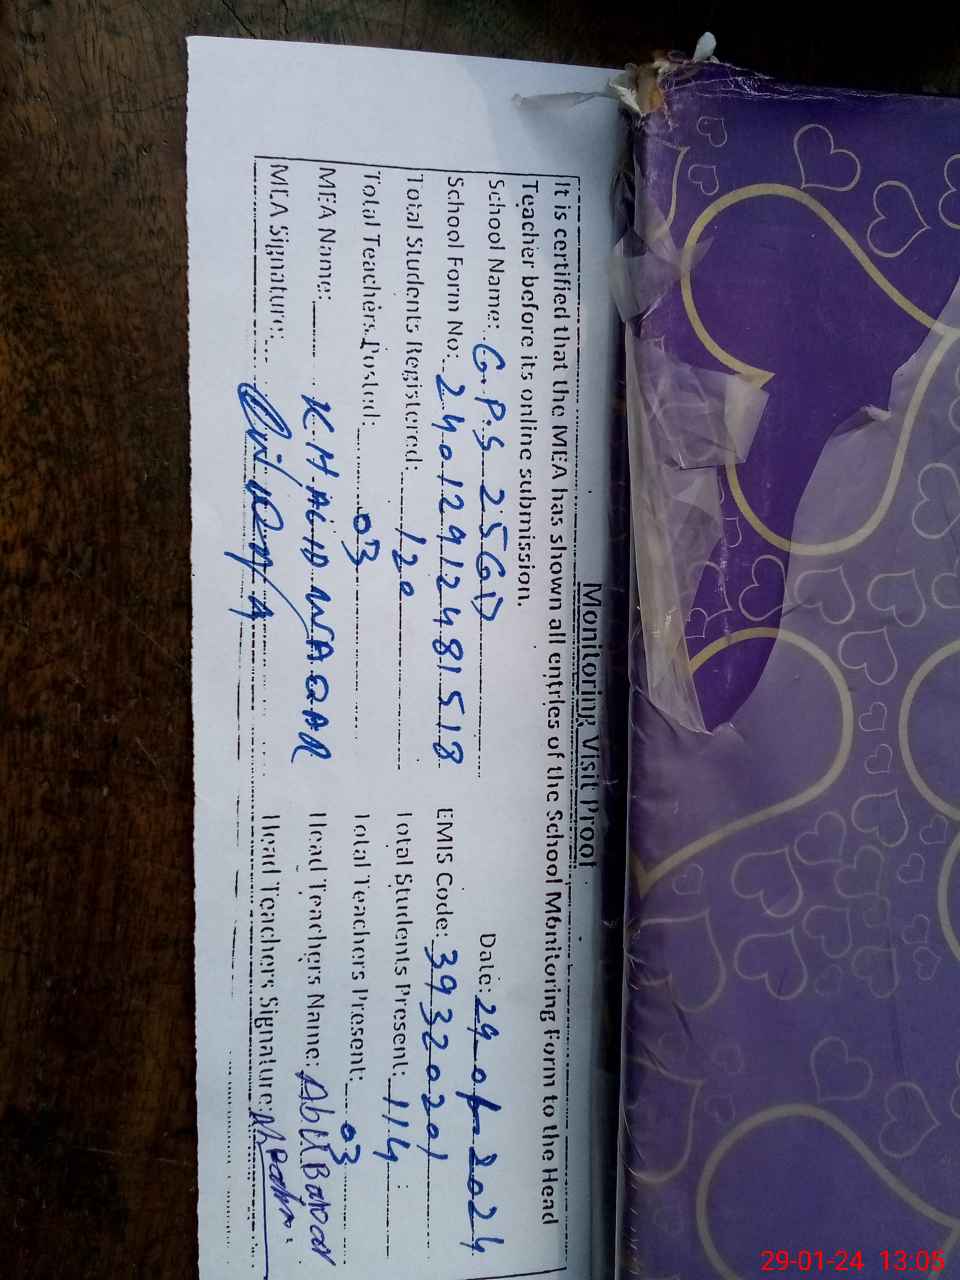 Monitoring Visit Proof
It is certified that the MEA has shown all entries of the School Monitoring Form to the Head
Teacher before its online submission.
School Name: G.P.S 25GD Date: 29-01-2024
School Form No: 24012912481518 EMIS Code: 39320201
Total Students Registered: 120 Total Students Present: 114
Total Teachers Posted: 03 Total Teachers Present: 03
MEA Name: KHALID WAQAR Head Teachers Name:
MEA Signature: Head Teachers Signature:
29-01-24 13:05